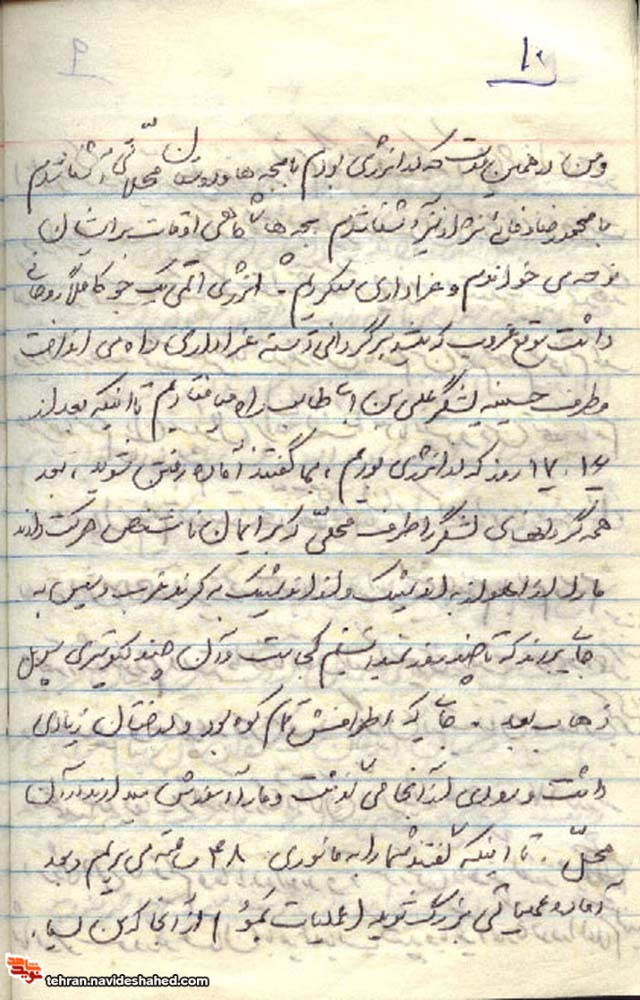 ۱۰
و من در همین مدت که در انرژی بودم با بچه ها و دوستان محلاتی آشنا شدم
با محمدرضا نژاد نیز آشنا شدم بچه ها گاهی اوقات برایشان
نوحه می خواندم و عزاداری میکردیم. انرژی اتمی یک جو کاملاً روحانی
داشت موقع غروب که میشد هر گردانی دسته عزاداری راه می انداخت
و طرف حسینیه لشگر علی بن ابی طالب راه میافتادیم تا اینکه بعد از
۱۶، ۱۷ روز که در انرژی بودیم، بما گفتند آماده رفتن شوید، بعد
همه گردانهای لشگر را طرف محلی که برایمان نامشخص حرکت دادند
ما را از اهواز به اندیمشک و از اندیمشک به کرند غرب و سپس به
جایی بردند که تا چند روز نمیدانستیم کجاست و آن چند کیلومتری سرپل
ذهاب بود. جایی که اطرافش تمام کوه بود و درختان زیادی
داشت و رودی از آنجا می گذشت و ما را آموزش میدادند در آن
محلّ. تا اینکه گفتند شما را به مانوری ۴۸ ساعته می بریم و بعد
آماده عملیاتی بزرگ شوید (عملیات ) از آنجا که من
tehran.navideshahed.com